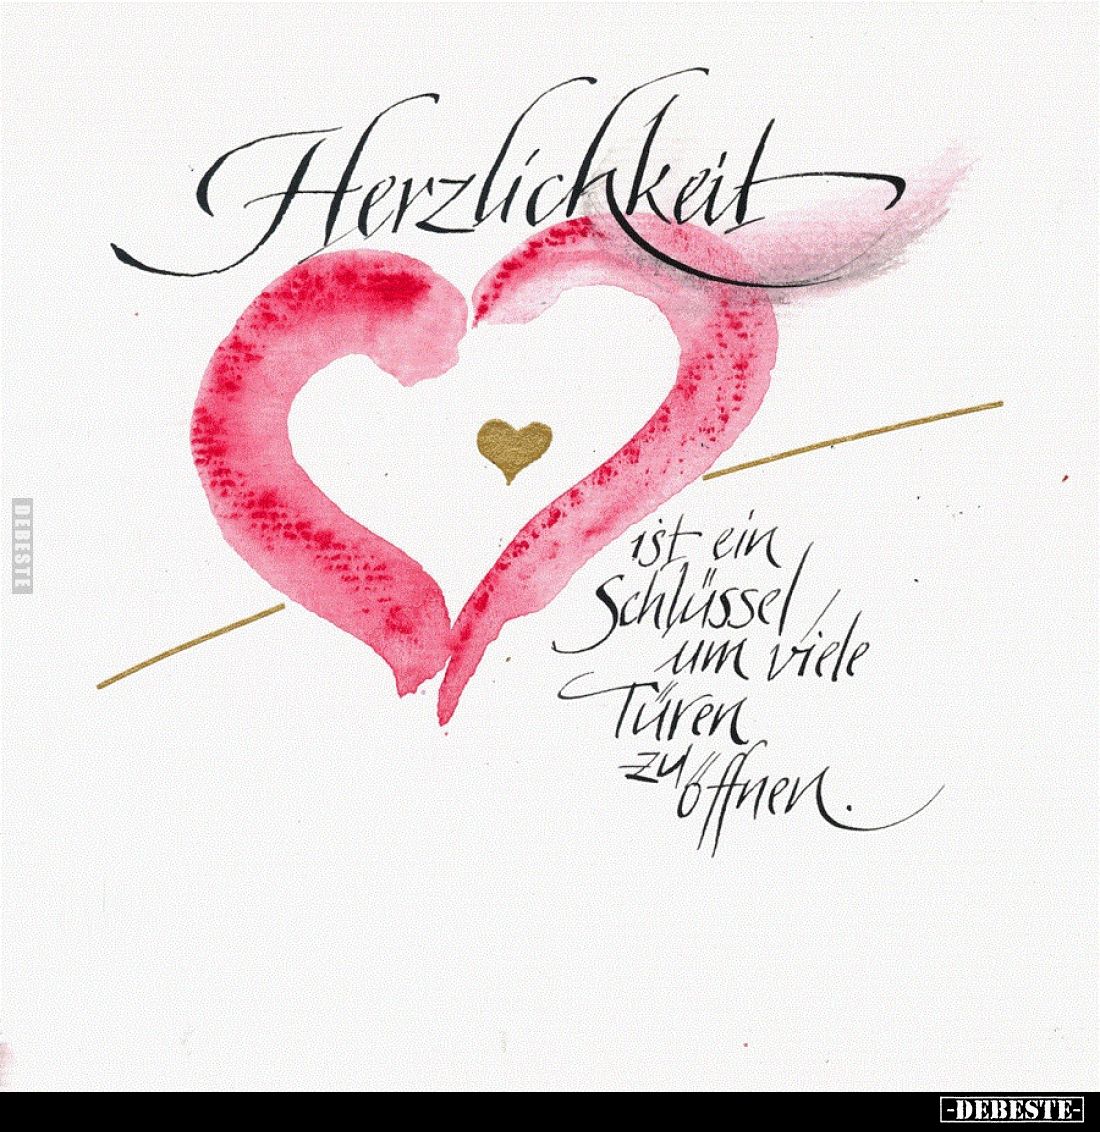 Herzlichkeit
ist ein
Schlüssel,
um viele
Türen
zu öffnen.
DEBESTE
-DEBESTE-